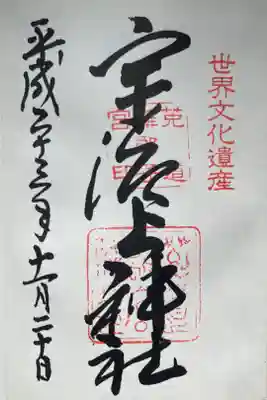 世界文化遺産
宇治上神社
平成二十三年十一月二十日